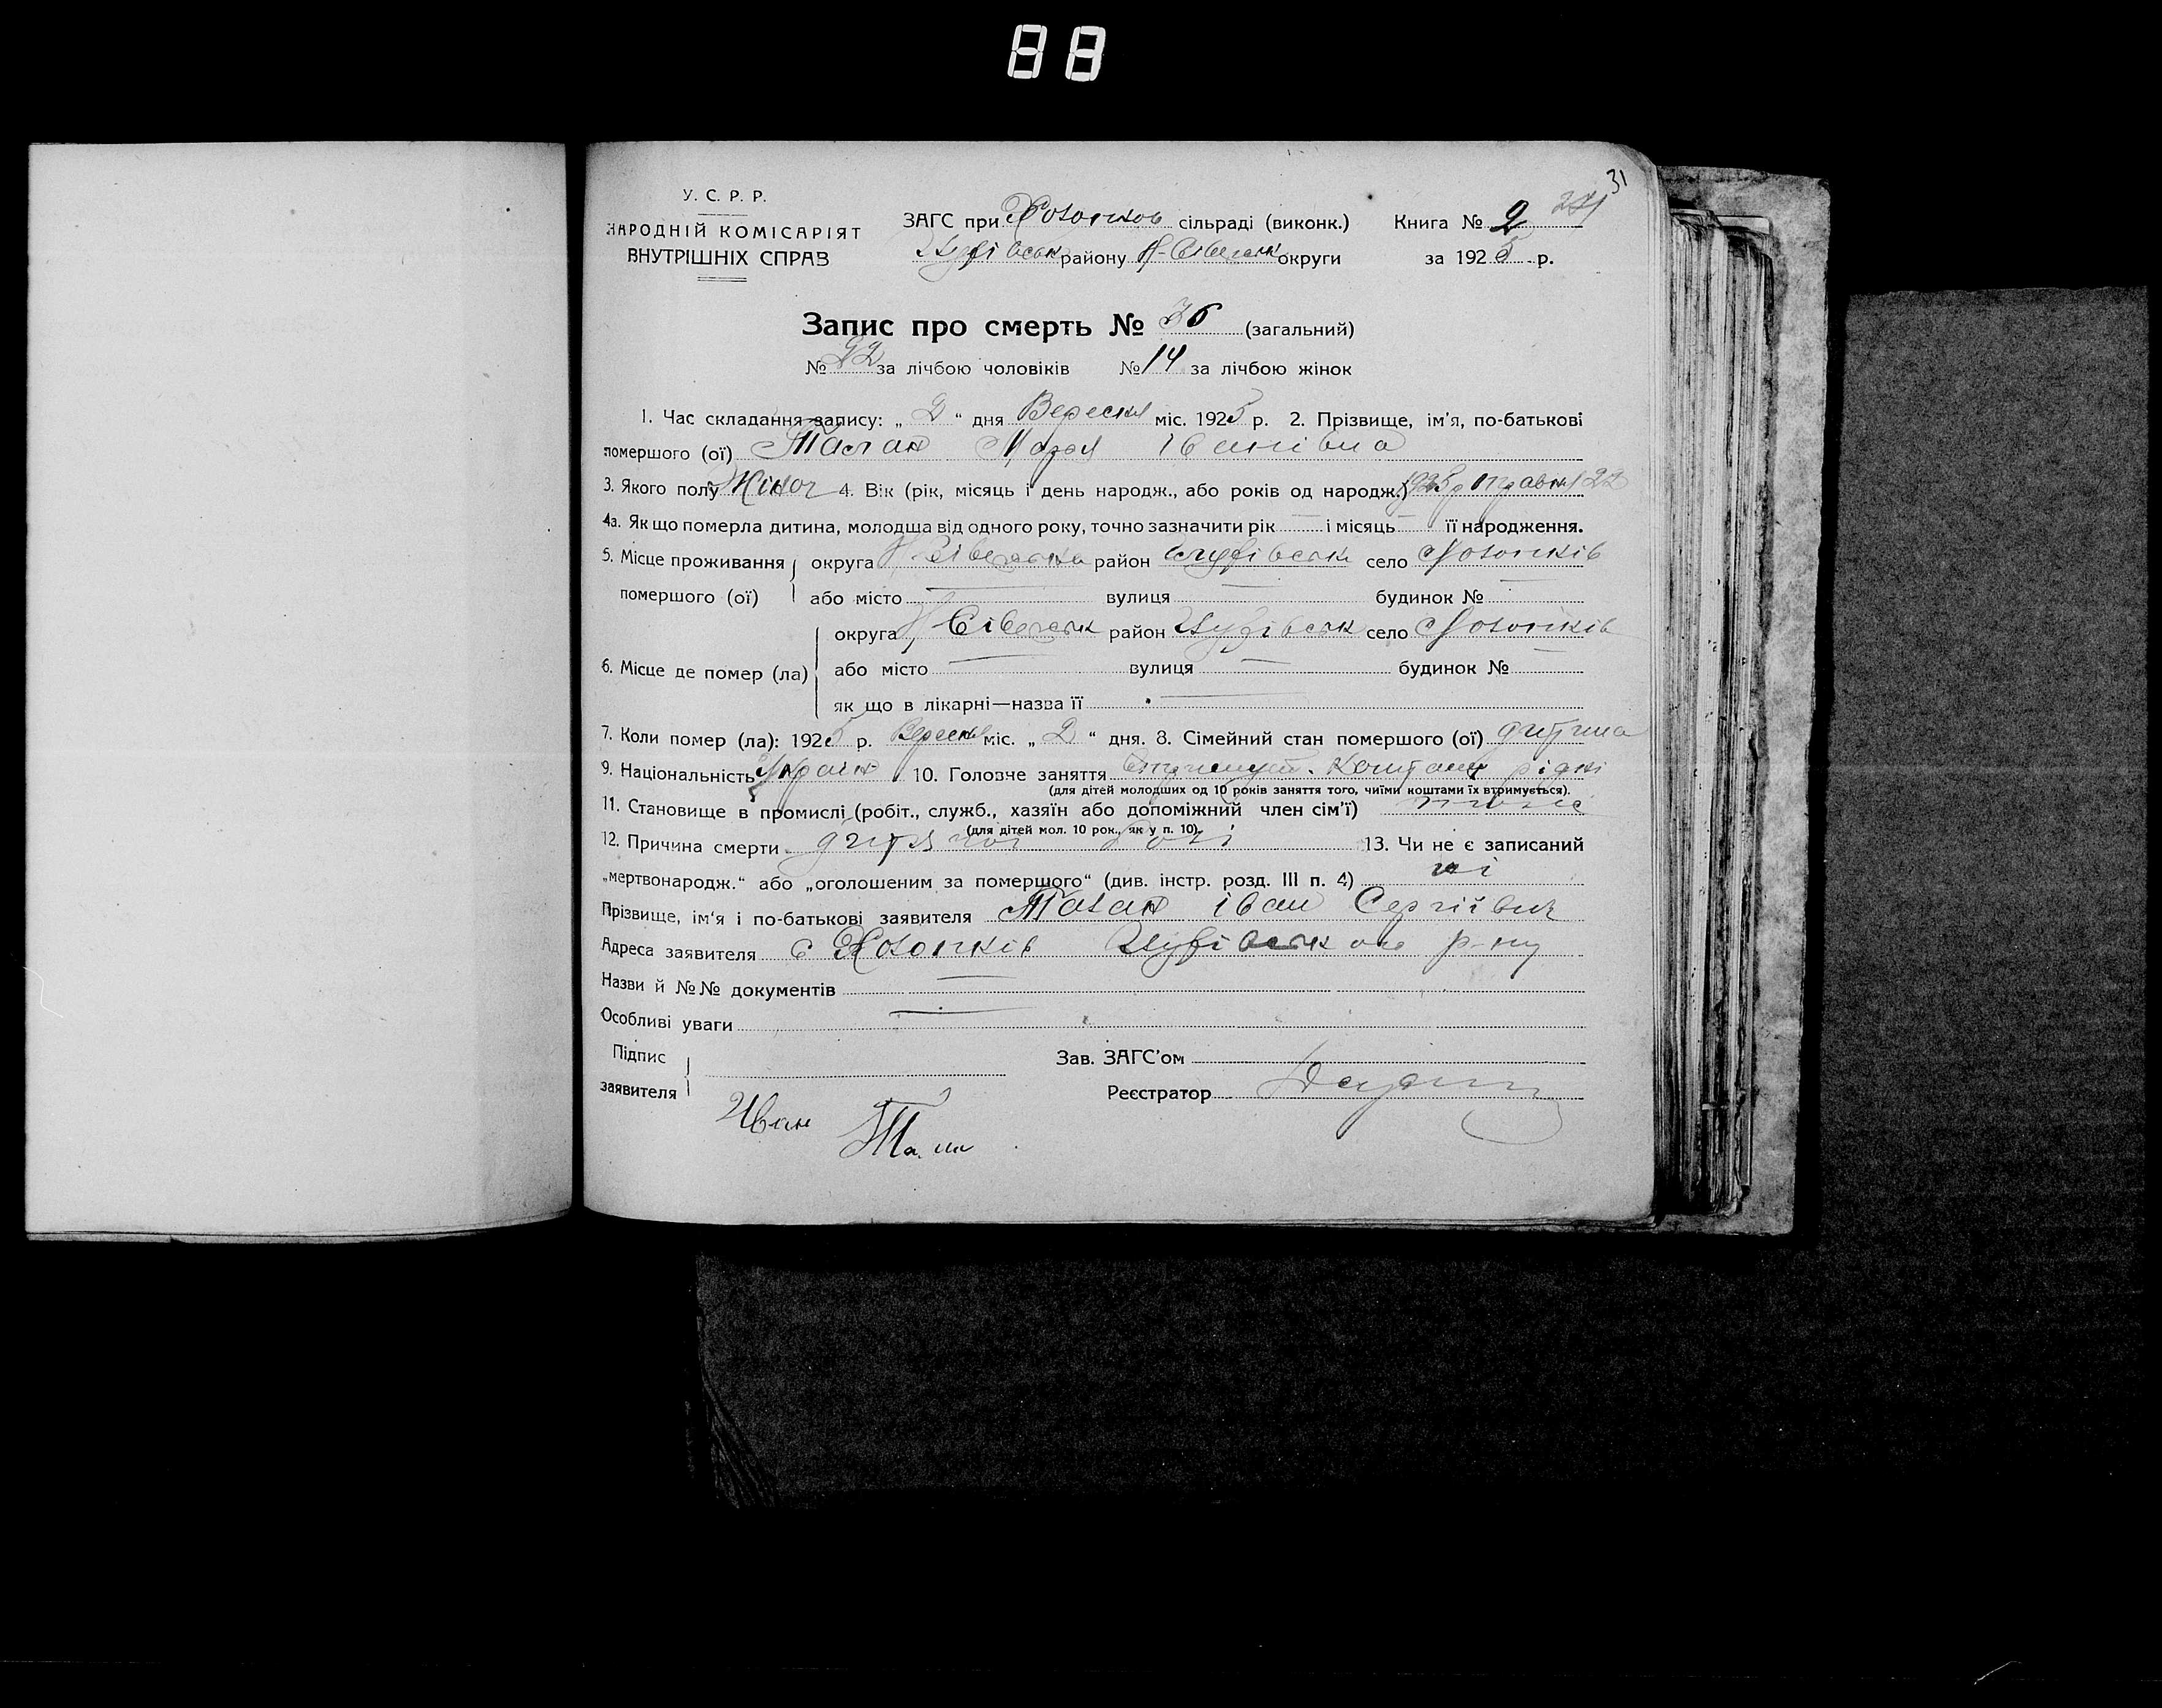 88
31
У. С. Р. Р.
НАРОДНІЙ КОМІСАРІЯТ
ВНУТРІШНІХ СПРАВ
ЗАГС при Холопков сільраді (виконк.) Книга № 2
району округи за 1925 р.
Запис про смерть № 36 (загальний)
№ 22 за лічбою чоловіків № 14 за лічбою жінок
1. Час складання запису: „ 2 “ дня Вересня міс. 1925 р. 2. Прізвище, ім'я, по-батькові
помершого (ої) Талан Марія Іванівна
3. Якого полу Жіноч 4. Вік (рік, місяць і день народж., або років од народж.) 1925 р Травня 22
4а. Як що померла дитина, молодша від одного року, точно зазначити рік — і місяць — її народження.
5. Місце проживання округа район село Холопків
помершого (ої) або місто — вулиця — будинок № —
округа район село Холопків
6. Місце де помер (ла) або місто — вулиця — будинок № —
як що в лікарні—назва її —
7. Коли помер (ла): 1925 р. Вересня міс. „ 2 “ дня. 8. Сімейний стан помершого (ої) дитина
9. Національність Україн 10. Головне заняття
(для дітей молодших од 10 років заняття того, чиїми коштами їх втримується).
11. Становище в промислі (робіт., служб., хазяїн або допоміжний член сім'ї)
(для дітей мол. 10 рок., як у п. 10).
12. Причина смерти 13. Чи не є записаний
„мертвонародж.“ або „оголошеним за помершого“ (див. інстр. розд. III п. 4) ні
Прізвище, ім'я і по-батькові заявителя Талан Іван Сергіївич
Адреса заявителя с Холопків р-ну
Назви й №№ документів —
Особливі уваги —
Підпис
заявителя
Зав. ЗАГС'ом
Реєстратор
Иван